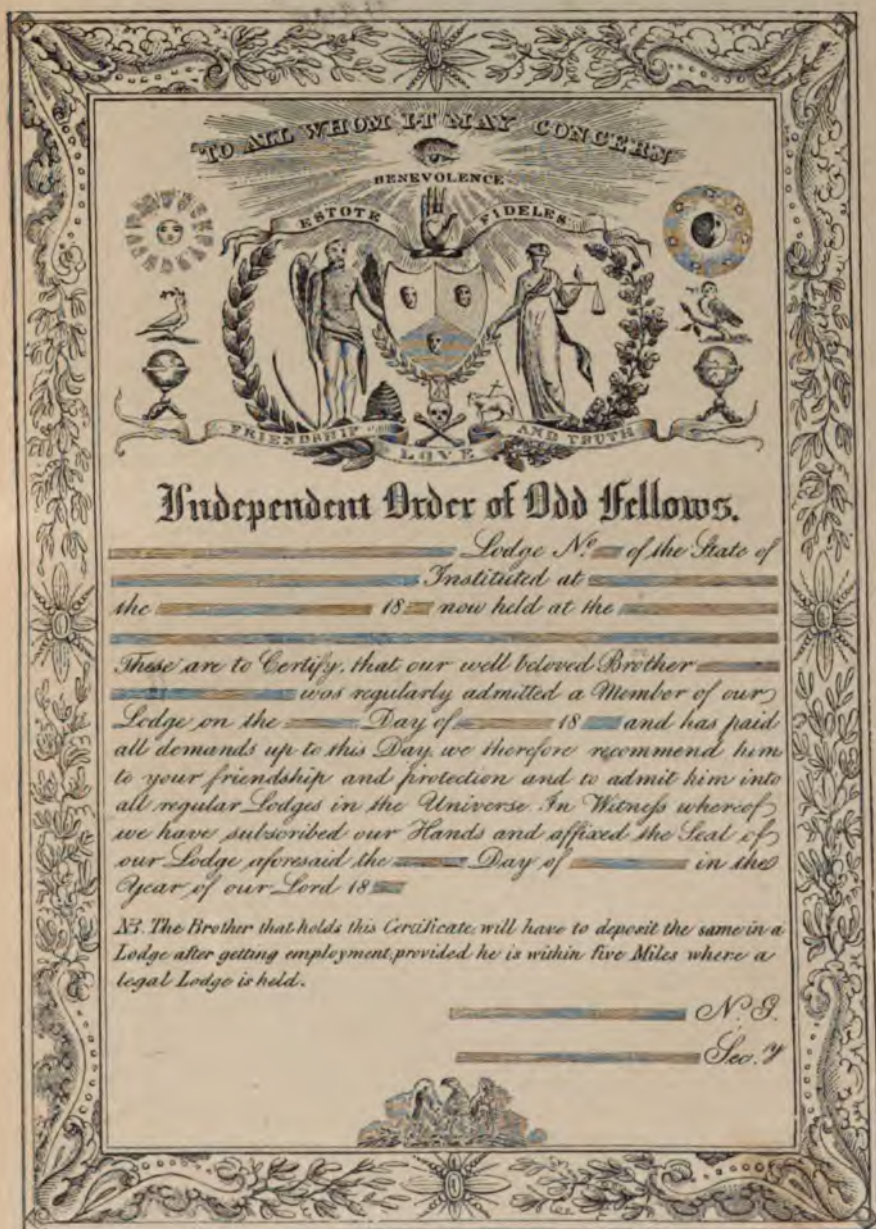 TO ALL WHOM IT MAY CONCERN
BENEVOLENCE
ESTOTE FIDELES
FRIENDSHIP LOVE AND TRUTH
Independent Order of Odd Fellows.
Lodge No. of the State of
Instituted at
the 18 now held at the
These are to Certify, that our well beloved Brother
was regularly admitted a Member of our
Lodge on the Day of 18 and has paid
all demands up to this Day, we therefore recommend him
to your friendship and protection and to admit him into
all regular Lodges in the Universe. In Witneſs whereof
we have subscribed our Hands and affixed the Seal of
our Lodge aforesaid the Day of in the
Year of our Lord 18
NB. The Brother that holds this Certificate, will have to deposit the same in a
Lodge after getting employment, provided he is within five Miles where a
legal Lodge is held.
N. G.
Sec.y